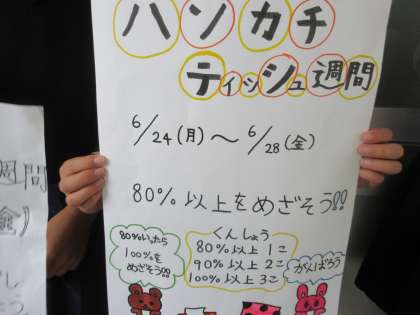 ハンカチ
ティッシュ週間
6/24(月)～6/28(金)
80%以上をめざそう!!
80%いったら
100%を
めざそう!!
くんしょう
80%以上1こ
90%以上2こ
100%以上3こ
がんばろう
週間
金)